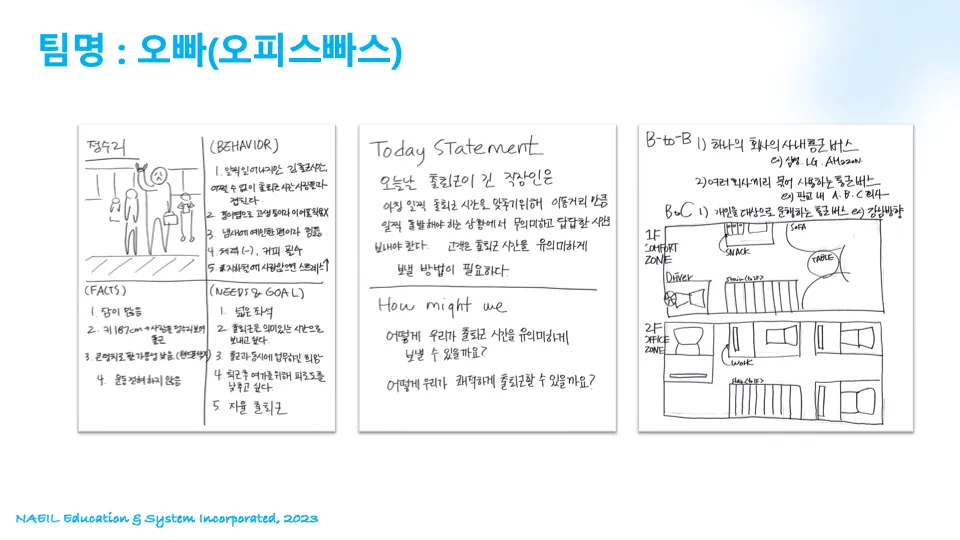 팀명 : 오빠(오피스빠스)
정수리
(BEHAVIOR)
1. 일찍 일어나지만 긴 출퇴근시간,
어쩔 수 없이 출퇴근 시간 사람들과
겹친다.
3. 냄새에 예민한 편이라
4. 체력(-), 커피 필수
(FACTS)
1. 땀이 많음
2. 키 187cm → 사람들 정수리 보며
출근
4. 운동 전혀 하지 않음
(NEEDS & GOAL)
1. 넓은 좌석
2. 출퇴근을 의미있는 시간으로
보내고 싶다.
3. 출근과 동시에 업무하길 희망
4. 퇴근 후 여가를 위해 피로도를
낮추고 싶다.
5. 자율 출퇴근
Today Statement
오늘날 출퇴근이 긴 직장인은
아침 일찍 출퇴근 시간을 맞추기위해 이동거리 만큼
일찍 출발해야 하는 상황에서 무의미하고 답답한 시간을
보내야 한다. 고객은 출퇴근 시간을 유의미하게
보낼 방법이 필요하다.
How might we
어떻게 우리가 출퇴근 시간을 유의미하게
보낼 수 있을까요?
어떻게 우리가 쾌적하게 출퇴근할 수 있을까요?
B-to-B 1) 하나의 회사의 사내 통근 버스
ex) 삼성. LG. Amazon.
2) 여러 회사끼리 묶어 사용하는 통근버스
ex) 판교 내 A. B. C 회사
BtoC 1) 개인을 대상으로 운행하는 통근 버스 ex) 강남방향
1F
COMFORT
ZONE
SNACK
SOFA
TABLE
Driver
2F
OFFICE
ZONE
Work
NAEIL Education & System Incorporated, 2023